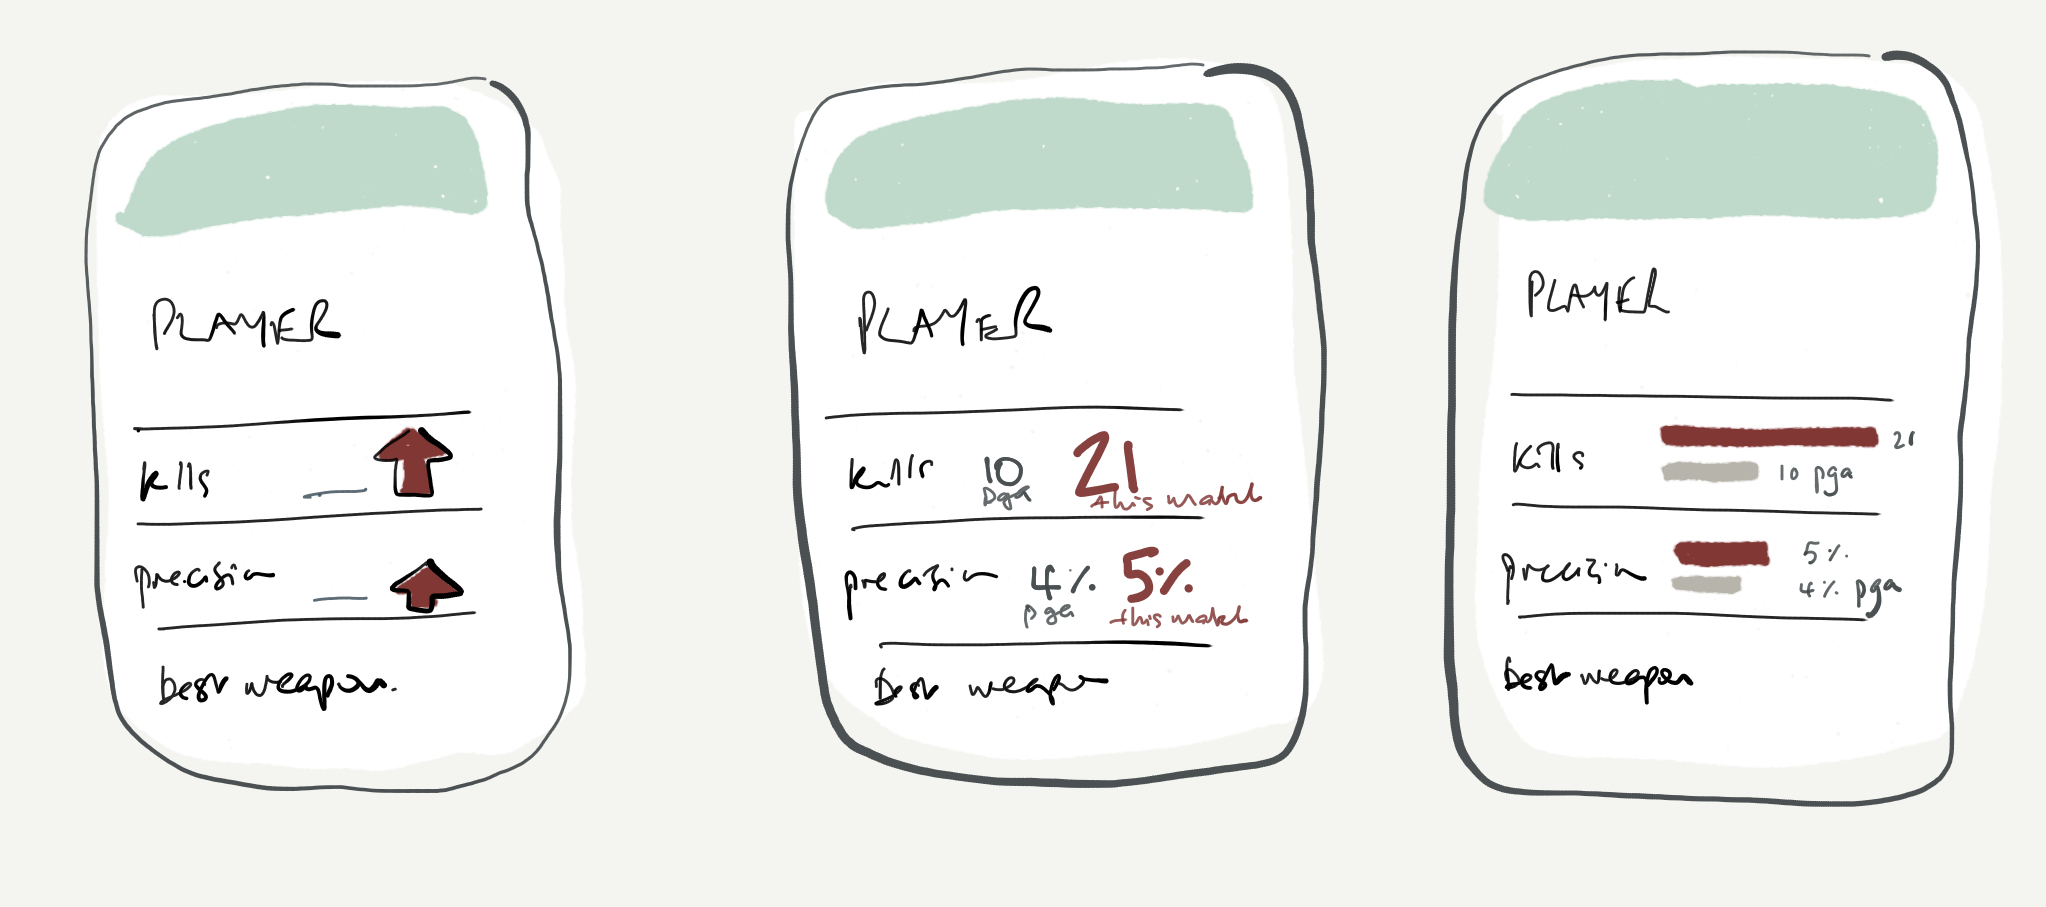 PLAYER
kills
precision
best weapon.
PLAYER
kills 10 21
pga this match
precision 4% 5%
pga this match
Best weapon
PLAYER
Kills 21
10 pga
precision 5%
4% pga
best weapon